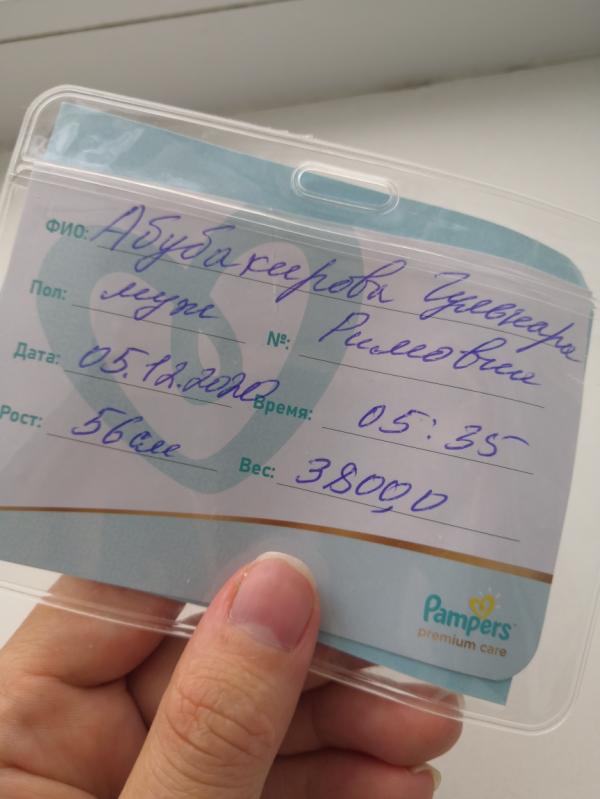 ФИО: Абубакирова Гульнара
Пол: муж №: Римовна
Дата: 05.12.2020 Время: 05:35
Рост: 56 см Вес: 3800,0
Pampers
premium care